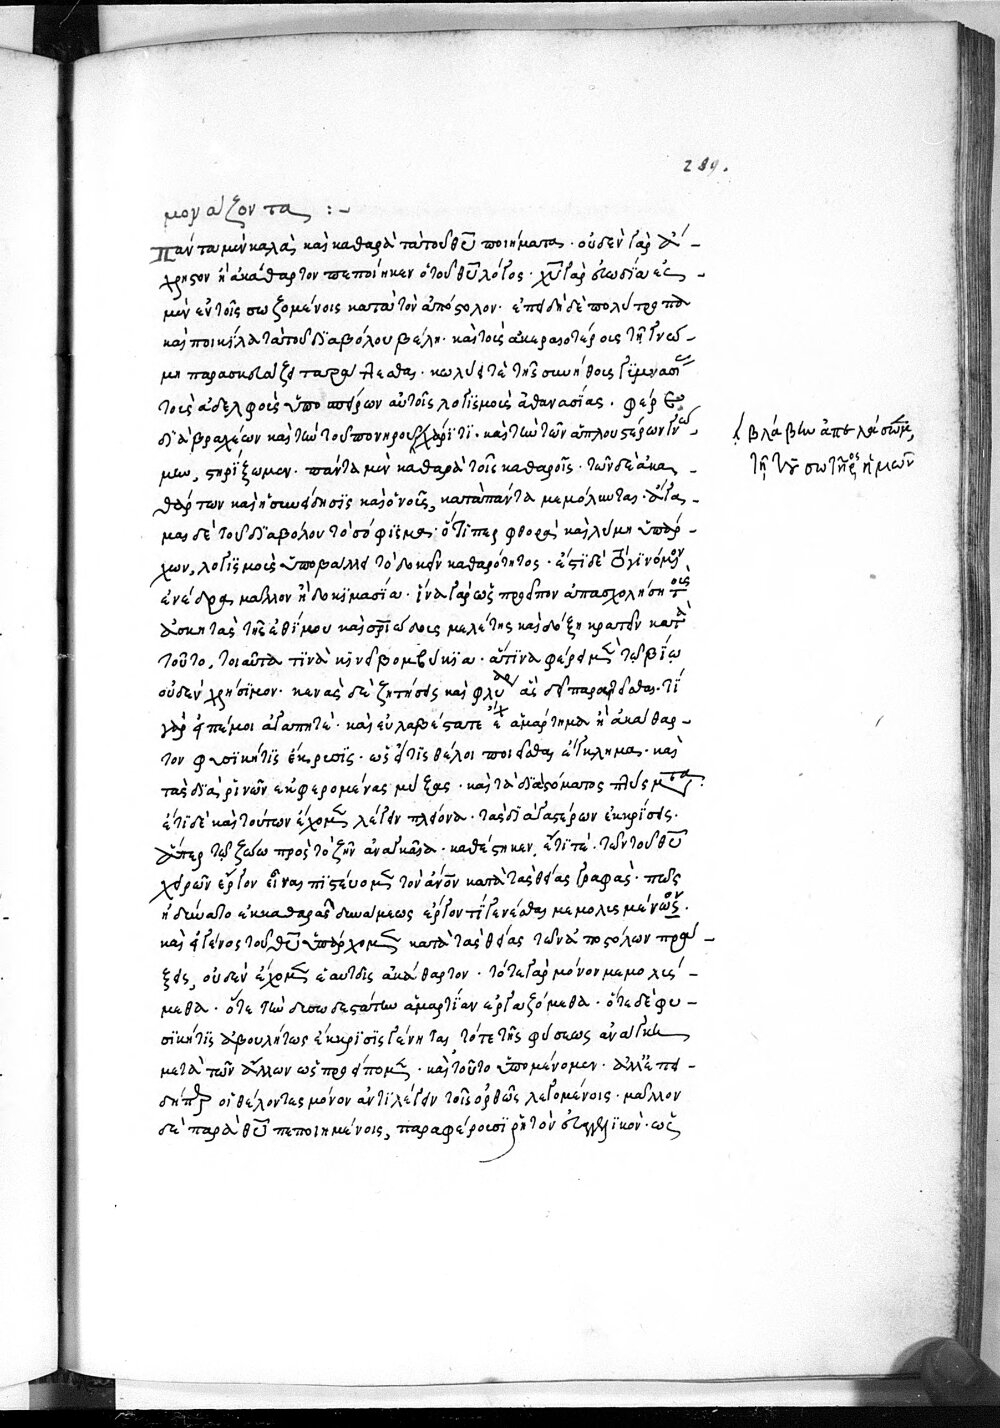 289.
μονάζοντα :~
Πάντα μὲν καλὰ καὶ καθαρὰ τὰ τοῦ θῦ ποιήματα· οὐδὲν γὰρ ἄ-
χρηστον ἢ ἀκάθαρτον πεποίηκεν ὁ τοῦ θῦ λόγος· χῦ γὰρ εὐωδία ἐσ-
μὲν ἐν τοῖς σωζομένοις κατὰ τὸν ἀπόστολον· ἐπειδὴ δὲ πολύτροπα
καὶ ποικίλα τὰ τοῦ διαβόλου βέλη· καὶ τοὺς ἀκεραιοτέρους τῇ γνώ-
μῃ παρασκευάζει ταράττεσθαι· κωλύει τὲ τῆς συνήθους γυμνασίας
τοὺς ἀδελφοὺς ὑποσπείρων αὐτοῖς λογισμοὺς ἀθανασίας· φέρε
διὰ βραχέων καὶ τὴν τοῦ πονηροῦ χάριτι· καὶ τὴν τῶν ἁπλουστέρων γνώ
μην, στηρίξωμεν· πάντα μὲν καθαρὰ τοῖς καθαροῖς· τῶν δὲ ἀκα-
θάρτων καὶ ἡ συνείδησις καὶ ὁ νοῦς, κατὰ πάντα μεμόλυνται· ἄγα-
μαι δὲ τοῦ διαβόλου τὸ σόφισμα· ὅτι περ φθορὰ καὶ λύμη ὑπάρ-
χων, λογισμοὺς ὑποβάλλει τὸ δοκεῖν καθαρότητος· ἔστι δὲ τὸ γινόμενον
ἐνέδρα μᾶλλον ἢ δοκιμασία· ἵνα γὰρ ὡς προεῖπον ἀπασχολήσῃ τοὺς
ἀσκητὰς τῆς ἐθίμου καὶ σωτηριώδους μελέτης καὶ δόξῃ κρατεῖν κατὰ
τοῦτο, τοιαῦτα τινὰ κινεῖ βομβύκια· ἅτινα φέρει μὲν τῷ βίῳ
οὐδὲν χρήσιμον· κενὰς δὲ ζητήσεις καὶ φλυαρίας ἃς δεῖ παραιτεῖσθαι· τί
γὰρ εἰπέ μοι ἀγαπητὲ· καὶ εὐλαβέστατε ἔχει ἁμάρτημα ἢ ἀκάθαρ-
τον φυσική τις ἔκκρισις· ὡς εἴ τις θέλοι ποιεῖσθαι ἔγκλημα· καὶ
τὰς διὰ ῥινῶν ἐκφερομένας μύξας· καὶ τὰ διὰ στόματος πτύσματα·
ἔτι δὲ καὶ τούτων ἔχομεν λέγειν πλείονα· τὰς διὰ γαστέρων ἐκκρίσεις·
ἅπερ τῷ ζώῳ πρὸς τὸ ζῆν ἀναγκαῖα· καθέστηκεν, ἔτι τὲ· τῶν τοῦ θῦ
χειρῶν ἔργον εἶναι πιστεύομεν τὸν ἄνον κατὰ τὰς θείας γραφάς· πῶς
ἠδύνατο ἐκ καθαρᾶς δυνάμεως ἔργον τὶ γενέσθαι μεμολυσμένον·
καὶ εἰ γένος τοῦ θῦ ὑπάρχομεν κατὰ τὰς θείας τῶν ἀποστόλων πρά-
ξεις, οὐδὲν ἔχομεν ἐν αυτοῖς ἀκάθαρτον· τότε γὰρ μόνον μεμολύσ-
μεθα· ὅτε τὴν δυσωδεστάτην ἁμαρτίαν ἐργαζόμεθα· ὅτε δὲ φυ-
σική τις ἀβουλήτως ἔκκρισις γένηται τότε τῆς φύσεως ἀνάγκη
μετὰ τῶν ἄλλων ὡς προείπομεν· καὶ τοῦτο ὑπομένομεν· ἀλλ' ἐπει-
δήπερ οἱ θέλοντες μόνον ἀντιλέγειν τοῖς ὀρθῶς λεγομένοις· μᾶλλον
δὲ παρὰ θῦ πεποιημένοις, παραφέρουσι ῥητὸν εὐαγγελικὸν· ὡς
βλάβην ἀπελάσωμεν,
τῇ τοῦ σωτῆρος ἡμῶν